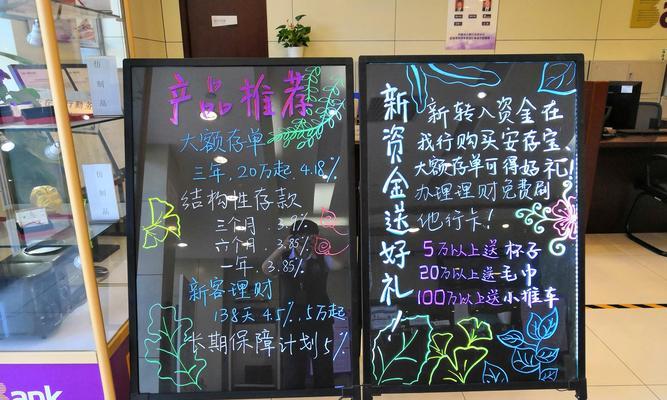 产品推荐
大额存单
三年,20万起 4.18%
结构性存款
三个月 3.9%
六个月 3.85%
一年 3.85%
新客理财
138天 4.5%,5万起
长期保障计划5%
新资金送好礼!
新转入资金在
我行购买安存宝、
大额存单可得好礼!
办理理财免费刷
他行卡!
5万以上送 杯子
20万以上送毛巾
100万以上送小推车
仿制品
仿制品
Bank